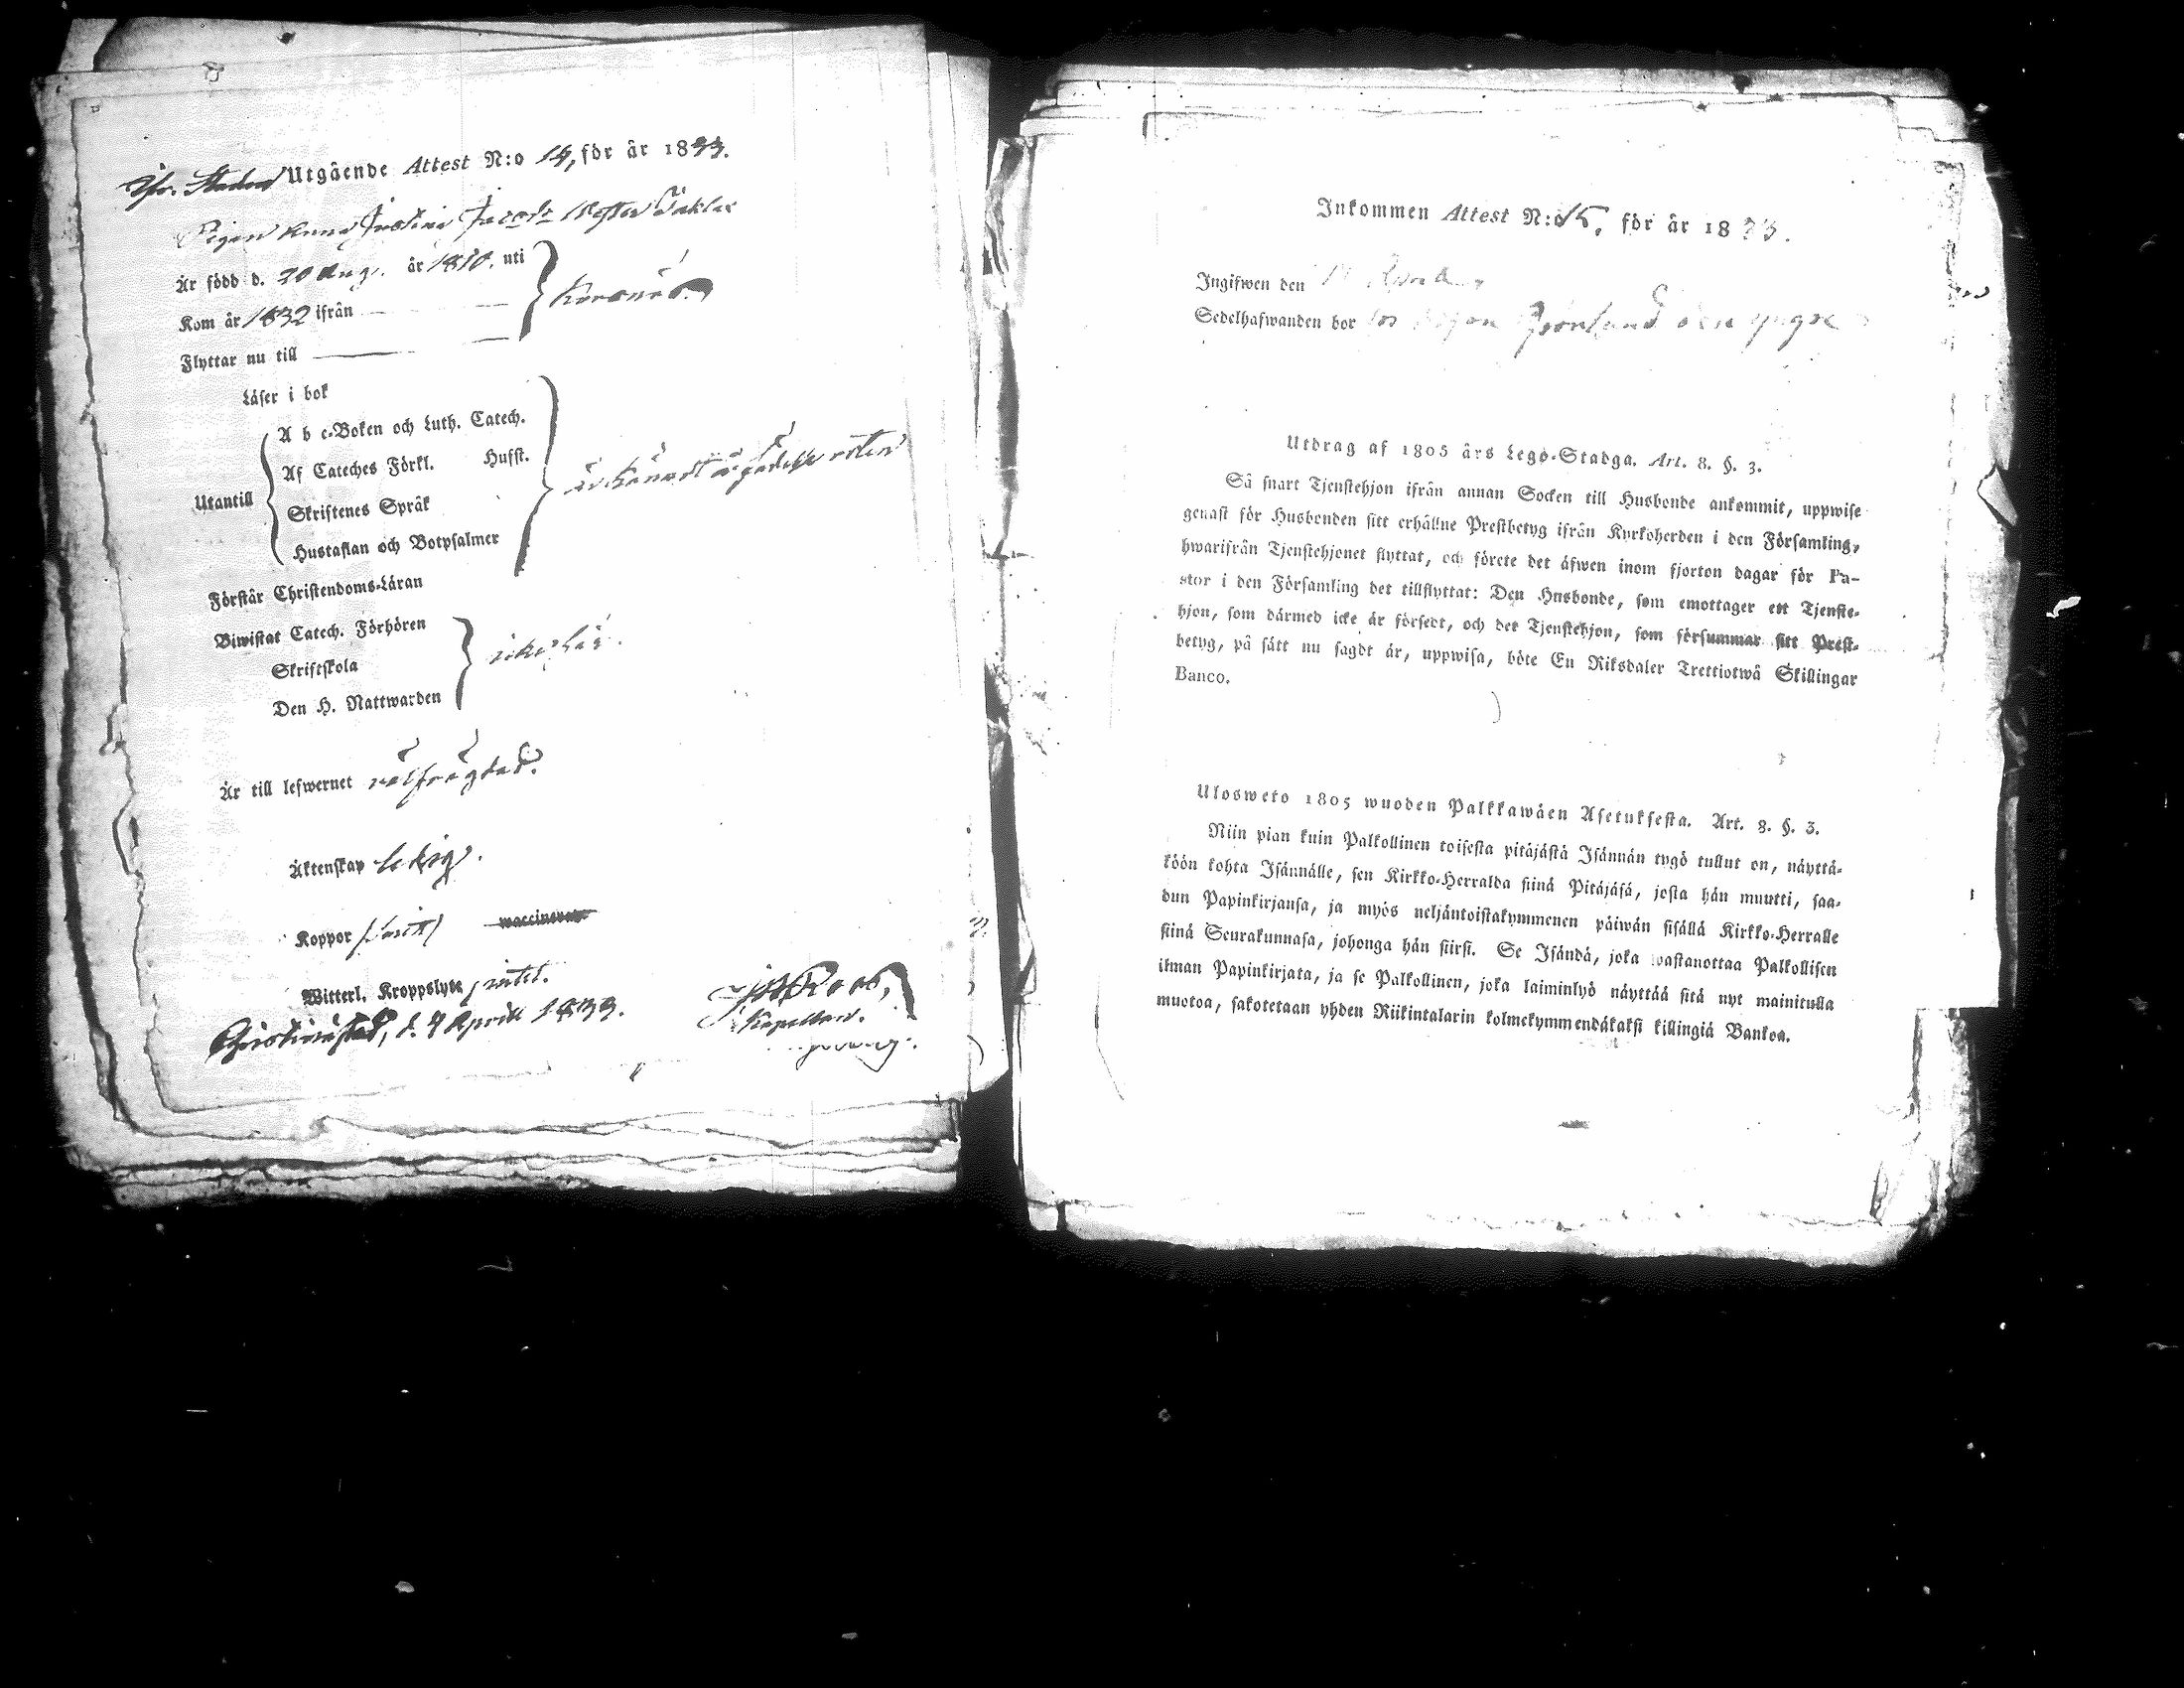 Chr. Stads Utgående Attest N:o 14, för år 1833.
Pigan Anna Justina Jacobs
Är född d. 20 Aug. år 1810. uti
Kom år 1832 ifrån
Korsnäs.
Flyttar nu till
Läser i bok
A b c-Boken och Luth. Catech.
Af Cateches Förkl. Husst.
Utantill
Skriftenes Språk
Hustaflan och Botpsalmer
Förstår Christendoms-Läran
Biwistat Catech. Förhören
Skriftskola
Den H. Nattwarden
Är till lefwernet välfrägdad.
Äktenskap ledig.
Koppor haft waccinerat
Witterl. Kroppslyte intet.
Christinæstad, d. 4 Aprill 1833.
Kapellan.
Inkommen Attest N:o 15. för år 1833.
Ingifwen den
Sedelhafwanden bor hos Grönlund den yngre
Utdrag af 1805 års Lego-Stadga. Art. 8. §. 3.
Så snart Tjenstehjon ifrån annan Socken till Husbonde ankommit, uppwise
genast för Husbonden sitt erhållne Prestbetyg ifrån Kyrkoherden i den Församling,
hwarifrån Tjenstehjonet flyttat, och förete det äfwen inom fjorton dagar för Pa-
stor i den Församling det tillflyttat: Den Husbonde, som emottager ett Tjenste-
hjon, som därmed icke är försedt, och det Tjenstehjon, som försummar sitt Prest-
betyg, på sätt nu sagdt är, uppwisa, böte En Riksdaler Trettiotwå Skillingar
Banco.
Ulosweto 1805 wuoden Palkkawäen Asetuksesta. Art. 8. §. 3.
Niin pian kuin Palkollinen toisesta pitäjästä Isännän tygö tullut on, näyttä-
köön kohta Isännälle, sen Kirkko-Herralda siinä Pitäjäsä, josta hän muutti, saa-
dun Papinkirjansa, ja myös neljäntoistakymmenen päiwän sisällä Kirkko-Herralle
siinä Seurakunnasa, johonga hän siirsi. Se Isändä, joka wastanottaa Palkollisen
ilman Papinkirjata, ja se Palkollinen, joka laiminlyö näyttää sitä nyt mainitulla
muotoa, sakotetaan yhden Riikintalarin kolmekymmendäkaksi killingiä Bankoa.